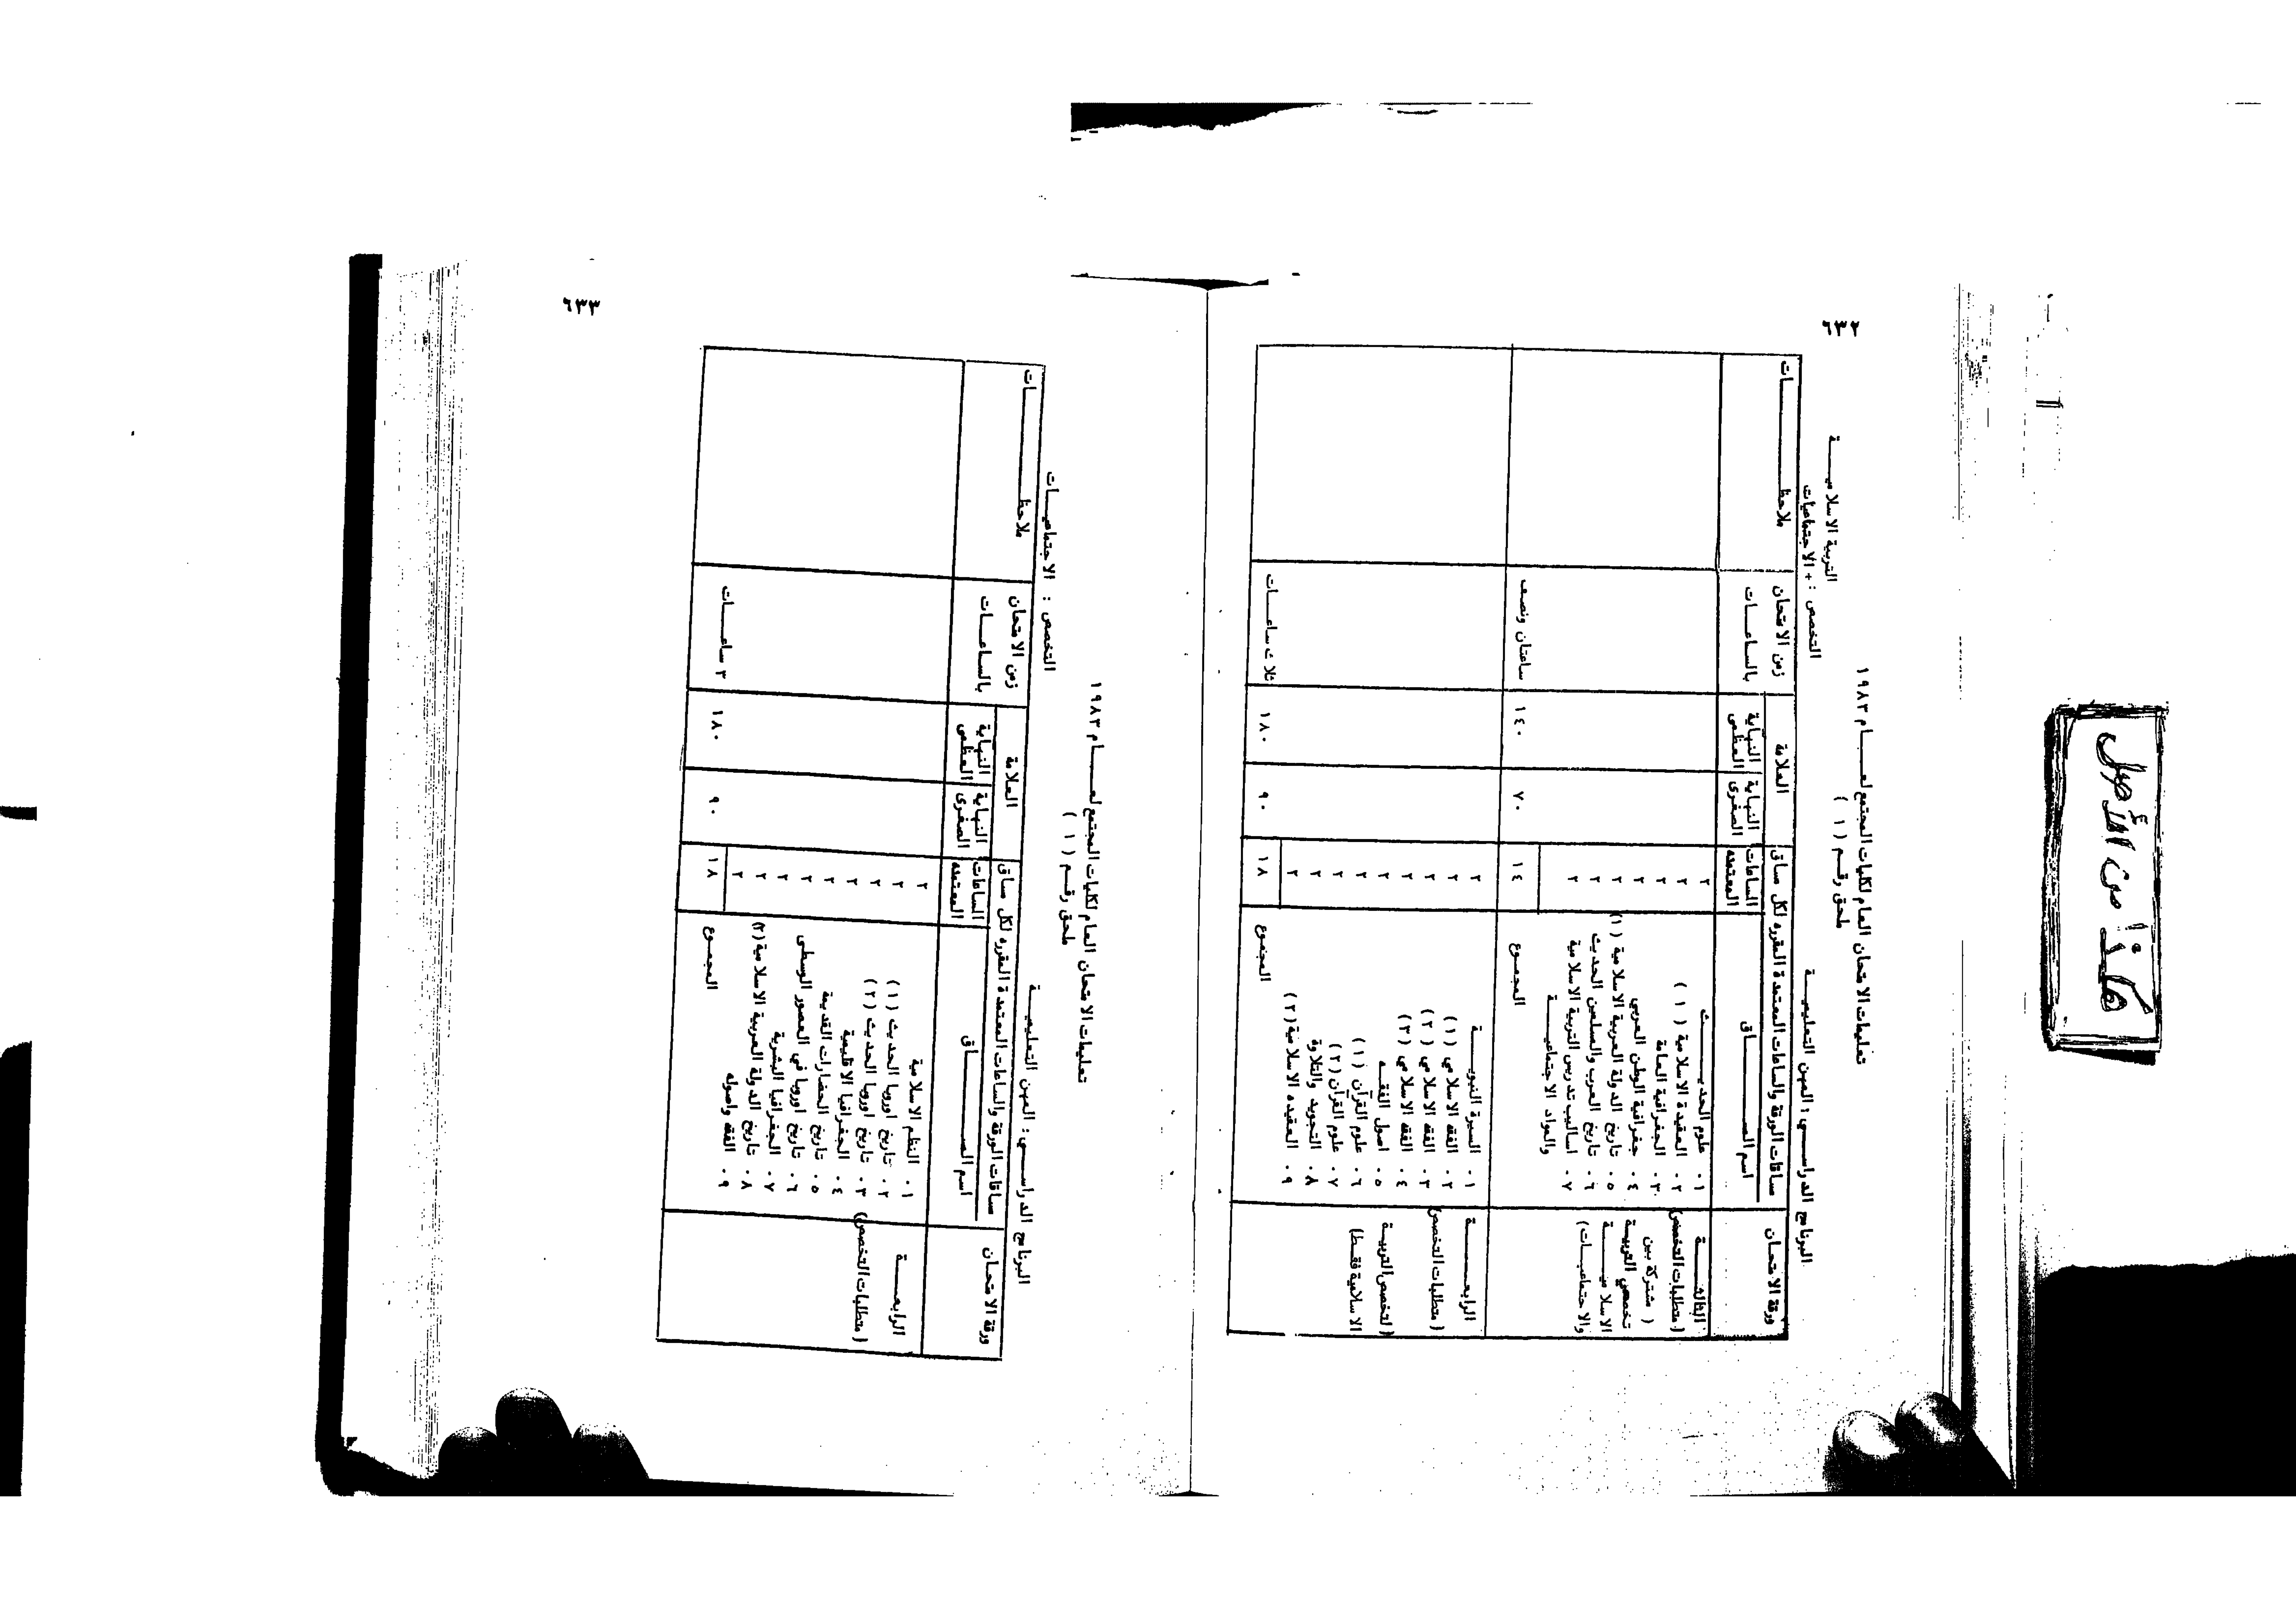 هكذا من الأصل
٦٣٢
تعليمات الامتحان العام لكليات المجتمع لعـــام ١٩٨٣
ملحق رقـم ( ١ )
البرنامج الدراســي : المهن التعليميـــة
التخصص : التربية الاسلاميـــة + الاجتماعيات
ورقة الامتحـان
ساقات الورقة والساعات المعتمدة المقرره لكل ساق
العلامة
زمن الامتحان بالساعـــات
ملاحظـــات
اسم الســـاق
الساعات المعتمده
النهاية الصغرى
النهاية العظمى
الثالثـــة
( متطلبات التخصص)
( مشتركة بين
تخصصي التربية
الاسلاميـــة
والاجتماعيـات)
١ ٠ علوم الحديـــث ٢
٢ ٠ العقيدة الاسلامية ( ١ ) ٢
٣ ٠ الجغرافية العامة ٢
٤ ٠ جغرافية الوطن العربي ٢
٥ ٠ تاريخ الدولة العربية الاسلامية (١) ٢
٦ ٠ تاريخ العرب والمسلمين الحديث ٢
٧ ٠ اساليب تدريس التربية الاسلامية ٢
والمواد الاجتماعيـــة
المجمـوع ١٤ ٧٠ ١٤٠ ساعتان ونصف
الرابعـــة
( متطلبات التخصص)
(لتخصص التربيـة
الاسلامية فقـط)
١ ٠ السيرة النبويـــة ٢
٢ ٠ الفقه الاسلامي (١) ٢
٣ ٠ الفقه الاسلامي (٢) ٢
٤ ٠ الفقه الاسلامي (٣) ٢
٥ ٠ اصول الفقـه ٢
٦ ٠ علوم القرآن (١) ٢
٧ ٠ علوم القرآن (٢) ٢
٨ ٠ التجويد والتلاوة ٢
٩ ٠ العقيده الاسلامية (٢) ٢
المجمـوع ١٨ ٩٠ ١٨٠ ثلاث ساعـــات
٦٣٣
تعليمات الامتحان العام لكليات المجتمع لعـــام ١٩٨٣
ملحق رقـم ( ١ )
البرنامج الدراسـي : المهن التعليميـــة
التخصص : الاجتماعيـــات
ورقة الامتحـان
ساقات الورقة والساعات المعتمدة المقرره لكل ساق
العلامة
زمن الامتحان بالساعـــات
ملاحظـــات
اسم الســـاق
الساعات المعتمده
النهاية الصغرى
النهاية العظمى
الرابعـــة
( متطلبات التخصص)
١ ٠ النظم الاسلامية ٢
٢ ٠ تاريخ اوروبا الحديث (١) ٢
٣ ٠ تاريخ اوروبا الحديث (٢) ٢
٤ ٠ الجغرافيا الاقليمية ٢
٥ ٠ تاريخ الحضارات القديمة ٢
٦ ٠ تاريخ اوروبا في العصور الوسطى ٢
٧ ٠ الجغرافيا البشرية ٢
٨ ٠ تاريخ الدولة العربية الاسلامية (٢) ٢
٩ ٠ الفقه واصوله ٢
المجمـوع ١٨ ٩٠ ١٨٠ ٣ ساعـــات